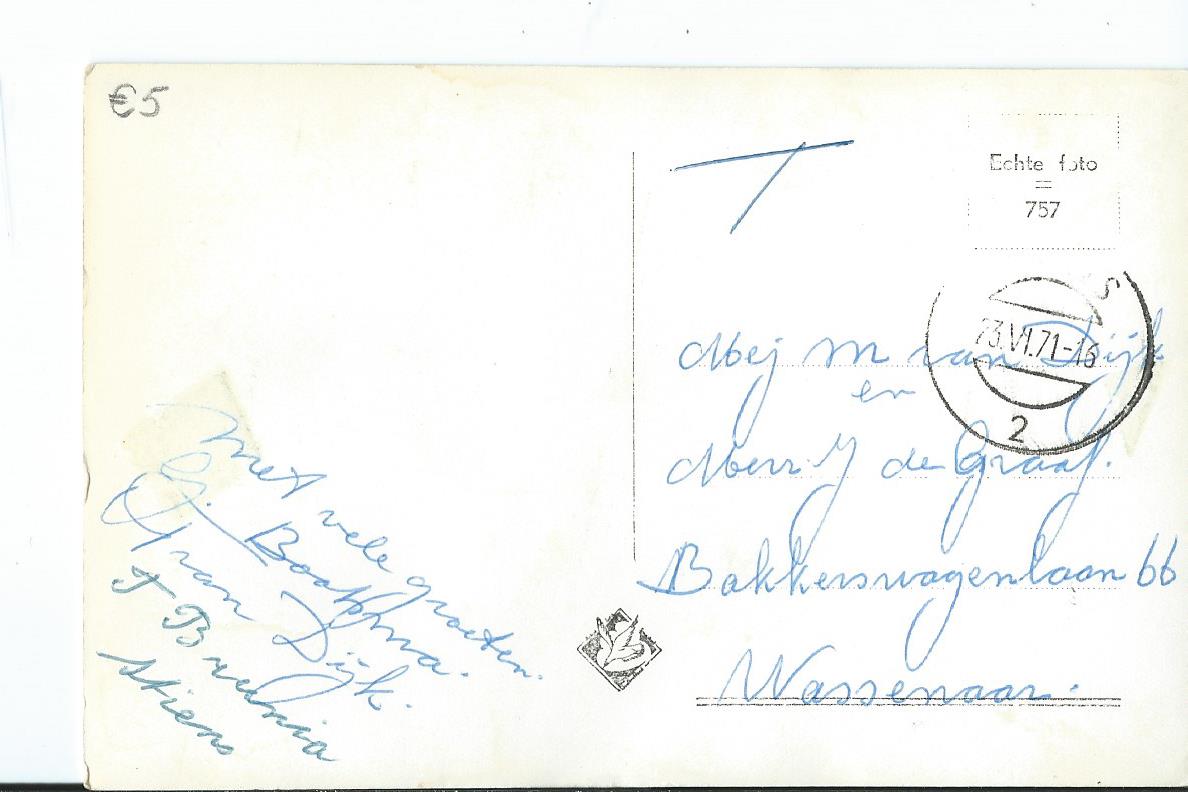 €5
T
Echte foto
=
757
S
23.VI.71-16
2
Mej M van Dijk
en
Merr. J de Graaf.
Bakkerswagenlaan 66
Wassenaar.
Met vele groeten.
G. Bookma.
J van Dijk.
J
Stiens